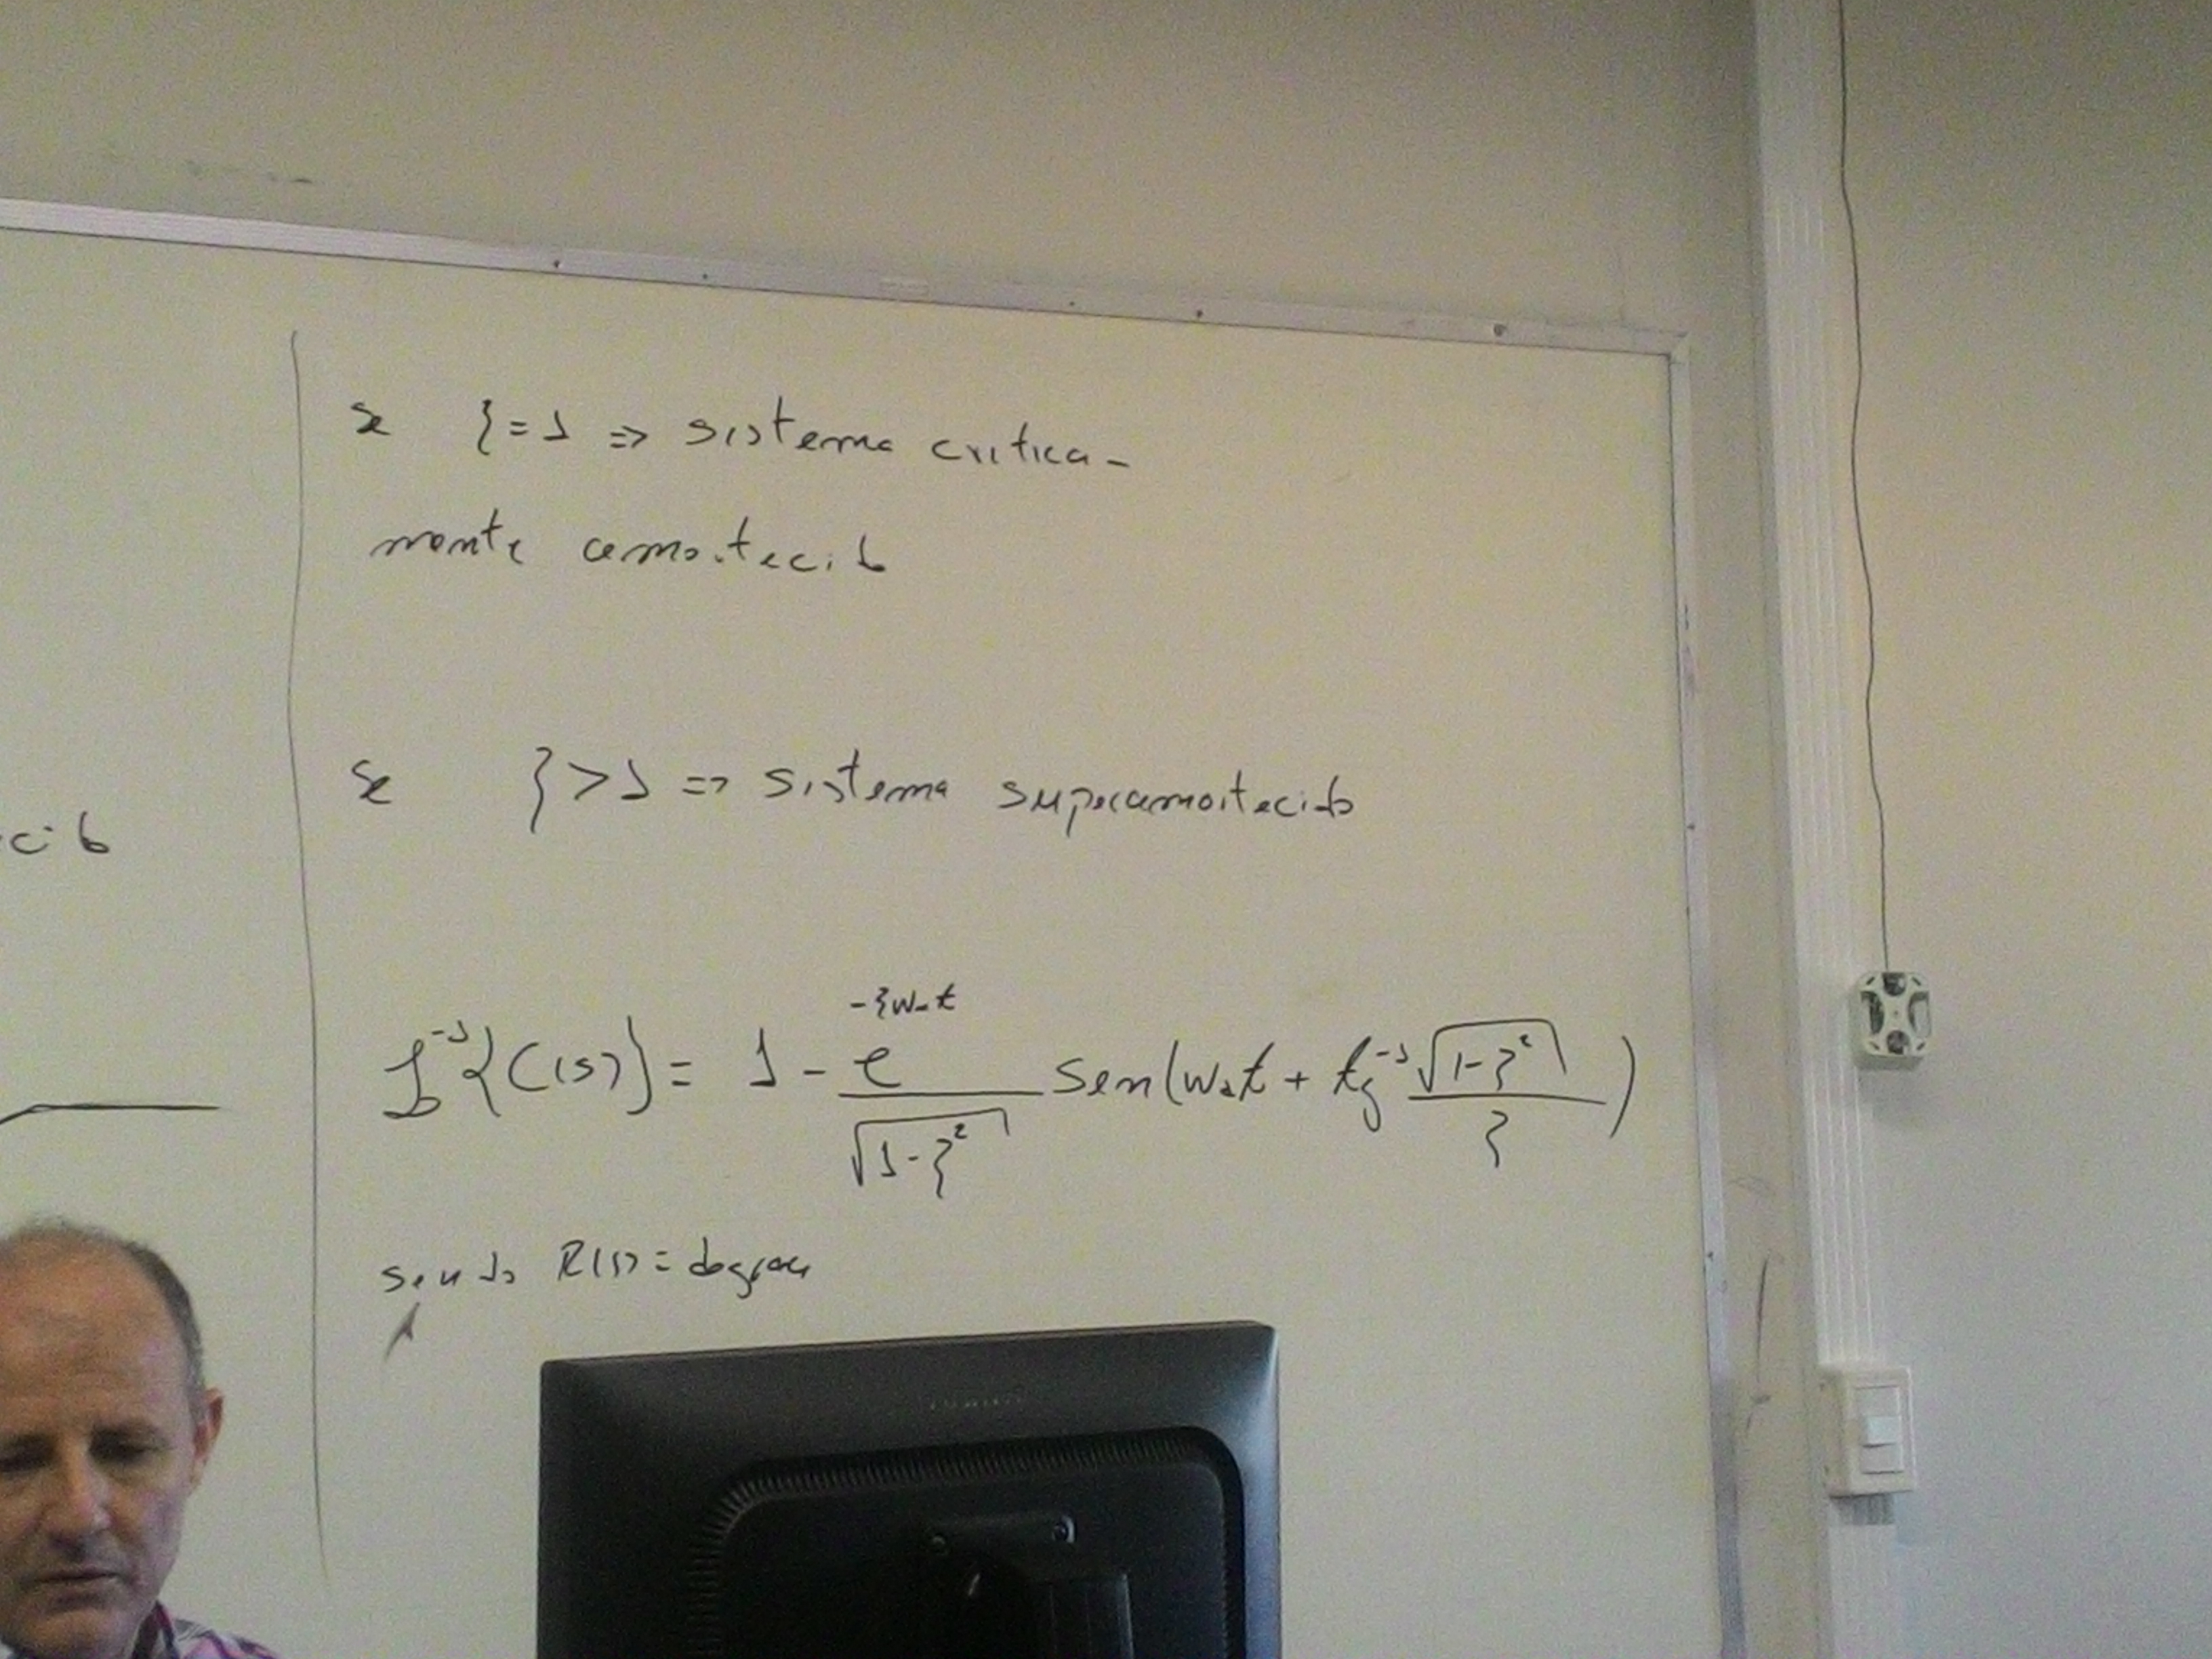 se ξ = 1 => sistema critica-
mente amortecido
se ξ > 1 => sistema superamortecido
cido
ℒ⁻¹{C(s)} = 1 - e^(-ξωₙt) / √(1-ξ²) sen(ω_d t + tg⁻¹ √(1-ξ²) / ξ)
sendo R(s) = degrau